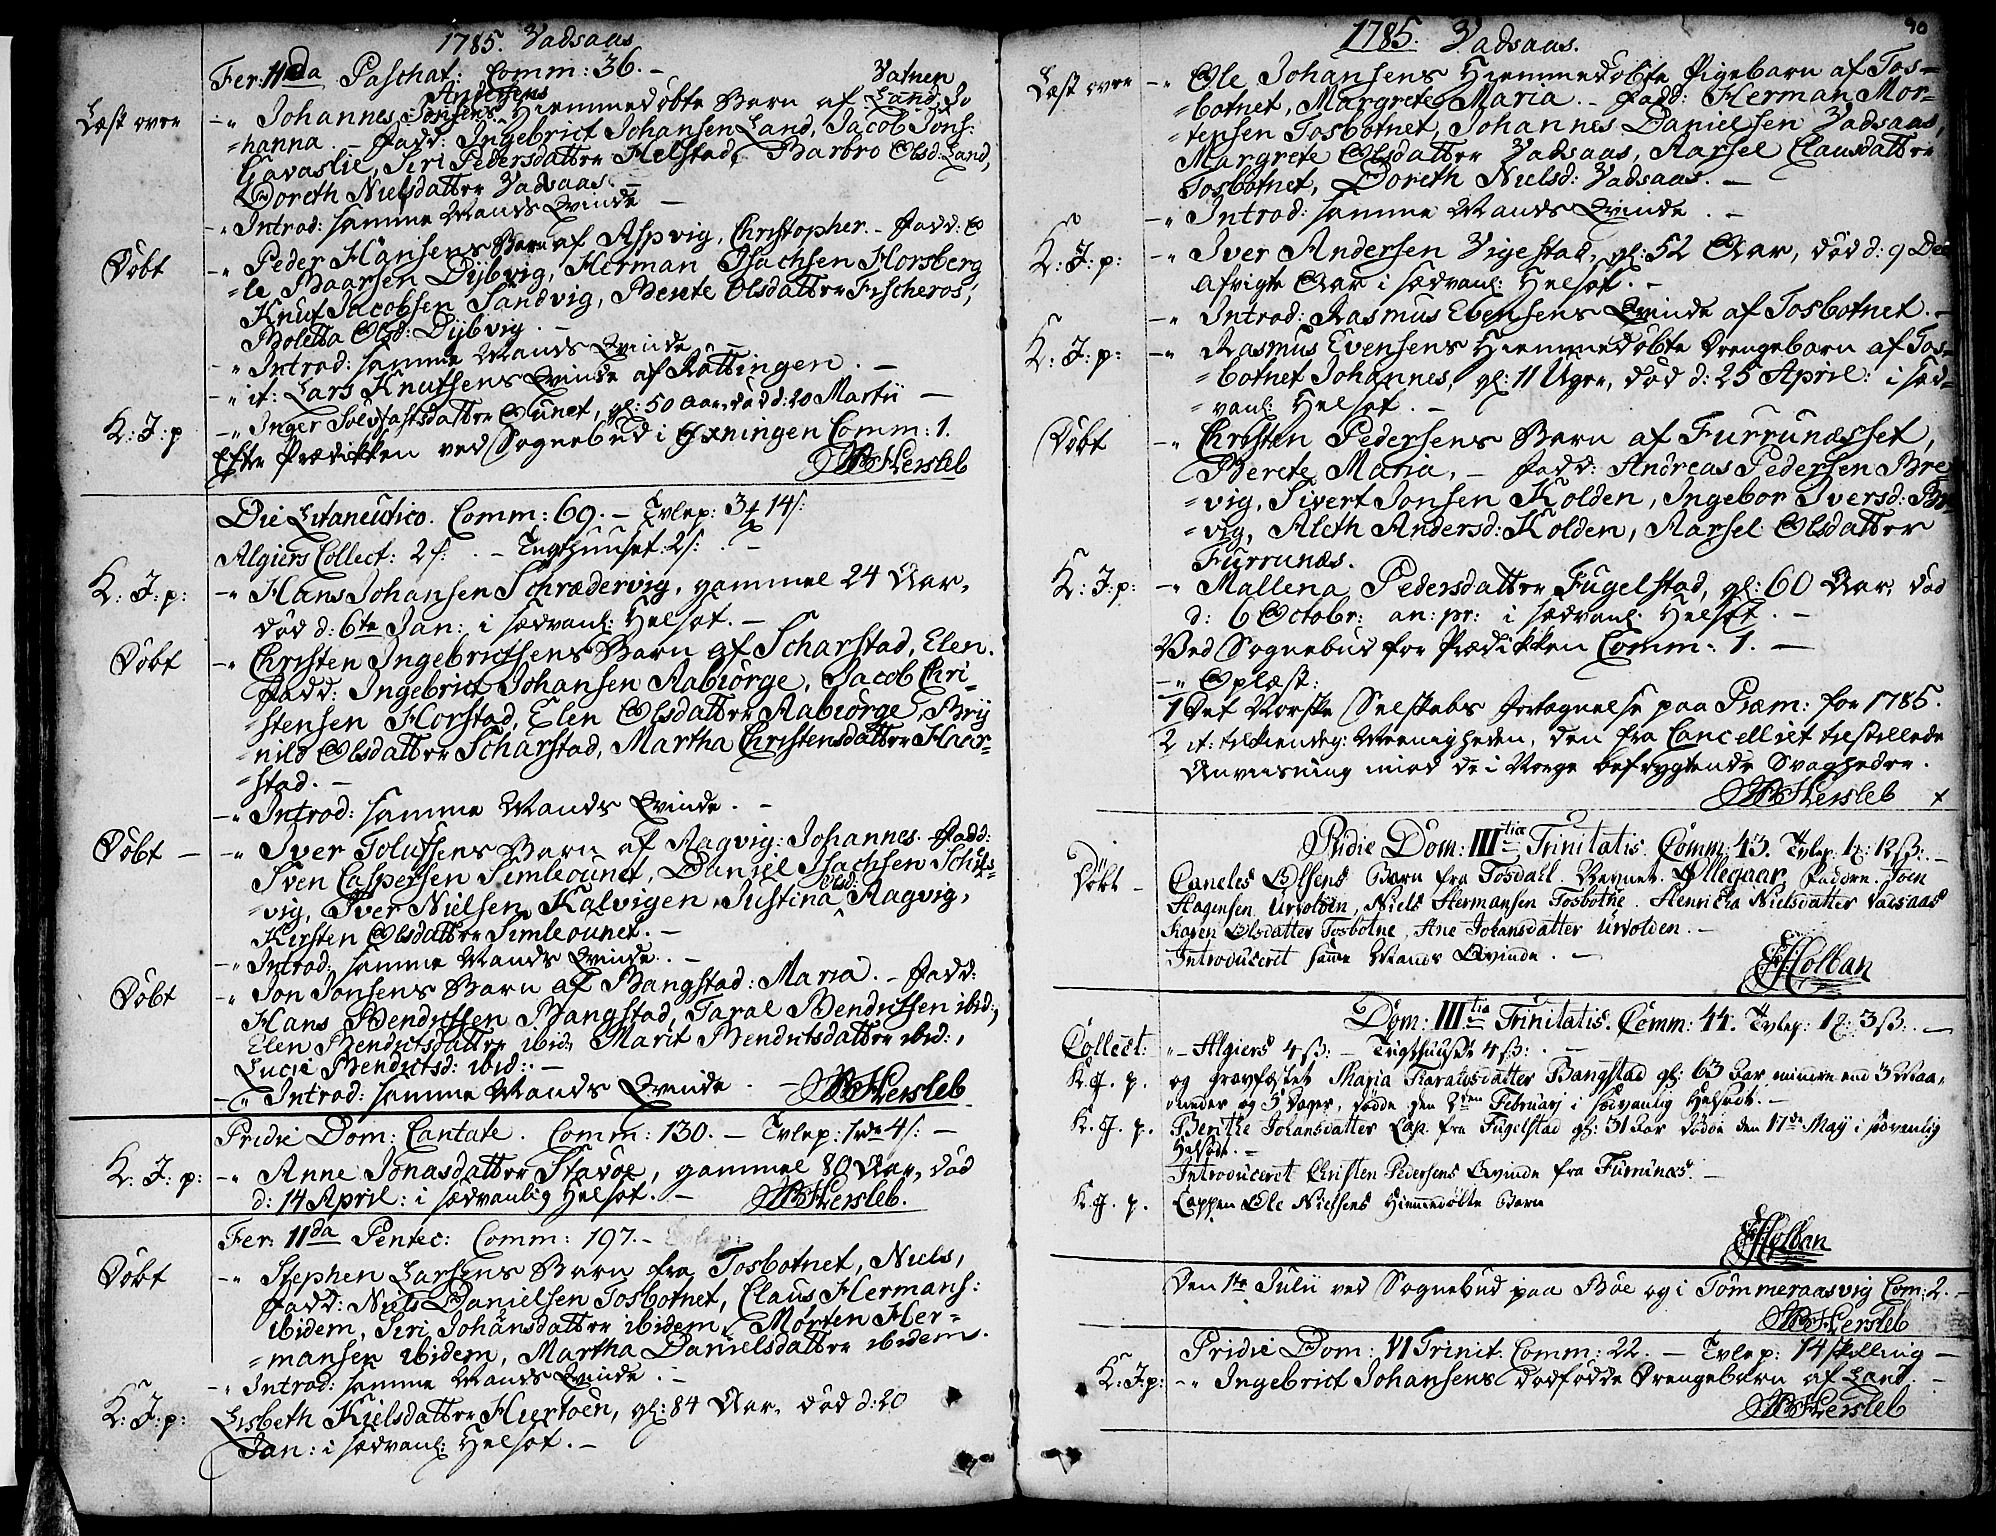 1785. Vadsaas
Fer: IIda Paschat: Comm: 36. —
Andersens Vatnen
Læst over —" Johannes Jonsens Hiemmedøbte Barn af Land, Jo
=hanna. — Fadd: Ingebrict Johansen Land, Jacob Jons:
Gavaslie, Siri Pedersdatter Helstad, Barbro Olsd: Land,
Doreth Nielsdatter Vadsaas. —
—" Introd: samme Mands Qvinde —
Døbt —" Peder Hansens Barn af Aspvig, Christopher. — Fadd: O
=le Baarsen Dÿbvig, Herman Isachsen Horsberg
Knut Jacobsen Sandvig, Berete Olsdatter Fischeros,
Boletta Olsd: Dÿbvig. —
—" Introd: samme Mands Qvinde —
—" it: Lars Knutsens Qvinde af Røttingen. —
K: J: p —" Inger Solvfastsdatter Øunet, gl: 50 Aar, død d: 20 Martii —
Efter Prædikken ved Sognebud i Øxningen Comm: 1.
Hersleb
Die Litaneutico. Comm: 69. — Tvlep: 3 14 s:
Algiers Collect: 2 s: . — Tugthuuset: 2 s: . —
K: J: p: —" Hans Johansen Schrædervig, gammel 24 Aar,
død d: 6te Jan: i sædvanl: Helsot. —
Døbt —" Christen Ingebrictsens Barn af Scharstad, Elen.
Fadd: Ingebrict Johansen Aabiørge, Jacob Chri-
=stensen Horstad, Elen Olsdatter Aabiørge, Brÿ
=nild Olsdatter Scharstad, Martha Christensdatter Haar-
=stad. —
—" Introd: samme Mands Qvinde. —
Døbt — —" Iver Tolufsens Barn af Aagvig: Johannes. Fadd:
Sven Caspersen Simleounet, Daniel Isachsen Schils-
Olsd:
=vig, Iver Nielsen Kalvigen, Justina Aagvig,
Kirsten Olsdatter Simleounet. —
—" Introd: samme Mands Qvinde. —
Døbt —" Jon Jonsens Barn af Bangstad: Maria. — Fadd:
Hans Bendictsen Bangstad, Taral Bendictsen ibid:,
Elen Bendictsdatter ibid: Marit Bendictsdatter ibid:,
Lucie Bendictsd: ibid: . —
—" Introd: samme Mands Qvinde. — Hersleb
Pridie Dom: Cantate. Comm: 130. — Tvlep: 1 4 s: —
K: J: p: —" Anne Jonasdatter Stavøe, gammel 80 Aar, død
d: 14 April: i sædvanlig Helsot. — Hersleb.
Fer: IIda Pentec: Comm: 197. —
Døbt —" Stephen Larsens Barn fra Tosbotnet, Niels,
Fadd: Niels Danielsen Tosbotnet, Claus Hermans:
ibidem, Siri Johansdatter ibidem, Morten Her-
=mansen ibidem, Martha Danielsdatter ibidem.
—" Introd: samme Mands Qvinde. —
K: J: p: Lisbeth Kielsdatter Hiertøen, gl: 84 Aar, død d: 20
Jan: i sædvanl: Helsot. —
1785. Vadsaas. 90
Læst over —" Ole Johansens Hiemmedøbte Pigebarn af Tos-
=botnet, Margrete Maria. — Fadd: Herman Mor-
=tensen Tosbotnet, Johannes Danielsen Vadsaas,
Margrete Olsdatter Vadsaas, Aarsel Clausdatter
Tosbotnet, Doreth Nielsd: Vadsaas. —
—" Introd: samme Mands Qvinde. —
K: J: p: —" Iver Andersen Vigestad, gl: 52 Aar, død d: 9 Dec
afvigte Aar i sædvanl: Helsot. —
—" Introd: Rasmus Evensens Qvinde af Tosbotnet. —
K: J: p: —" Rasmus Evensens Hiemmedøbte Drengebarn af Tos-
=botnet Johannes, gl: 11 Uger, død d: 25 April: i sæd-
=vanl: Helsot. —
Døbt —" Christen Pedersens Barn af Furrunæsset,
Berete Maria, — Fadd: Andreas Pedersen Bre
=vig, Sivert Jonsen Kolden, Ingebor Iversd: Bre-
=vig, Aleth Andersd: Kolden, Aarsel Olsdatter
Furrunæs.
K: J: p: —" Mallena Pedersdatter Fugelstad, gl: 60 Aar, død
d: 6 Octobr: an: pr: i sædvanl: Helsot. —
Ved Sognebud for Prædikken Comm: 1. —
—" Oplæst:
1 Det Norske Selskabs Indtagnelse paa Præm: for 1785.
2 it: tilkiendeg: Meenigheden, den fra Cancelliet tilstillede
Anviisning mod de i Norge befrygtende Svagheder.
Hersleb
Pridie Dom: IIItiæ Trinitatis. Comm: 43. Tvlep: 12 ß: —
Døbt — Caneles Olsens Barn fra Tosdall. Nevnet. Ollegaar, Fadere. Joen
Hagensen Urvolden, Niels Hermansen Tosbotne. Henricha Nielsdatter Vadsaas
Karen Olsdatter Tosbotne, Ane Johansdatter Urvolden. —
Introduceret samme Mands Qvinde. —
Holban
Dom: IIItia Trinitatis. Comm: 44. Tvlep: 3 ß: —
Collect: "— Algiers 4 ß: — Tugthuuset 4 ß: —
K. J. p. og gravfæstet Maria Taraldsdatter Bangstad gl: 63 Aar mindre end 3 Maa-
oneder og 3 Dager, døde den 2den Februarj i sædvanlig Helsodt. —
K. J. p. Berithe Johansdatter Lap. fra Fugelstad gl: 31 Aar døde den 17de Maÿ i sædvenlig
Helsodt. —
Introduceret Christen Pedersens Qvinde fra Furrunæs. —
K. J. p. Lappen Ole Nielsens Hiemmedøbte Barn
Holban
Den 1te Julii ved Sognebud paa Bøe og i Tømmeraasvig Com: 2. —
Hersleb
Pridie Dom: VI Trinit. Comm: 22. — Tvlep: 14 skilling —
K: J: p: —" Ingebrict Johansens dødfødde Drengebarn af Land. —
Hersleb